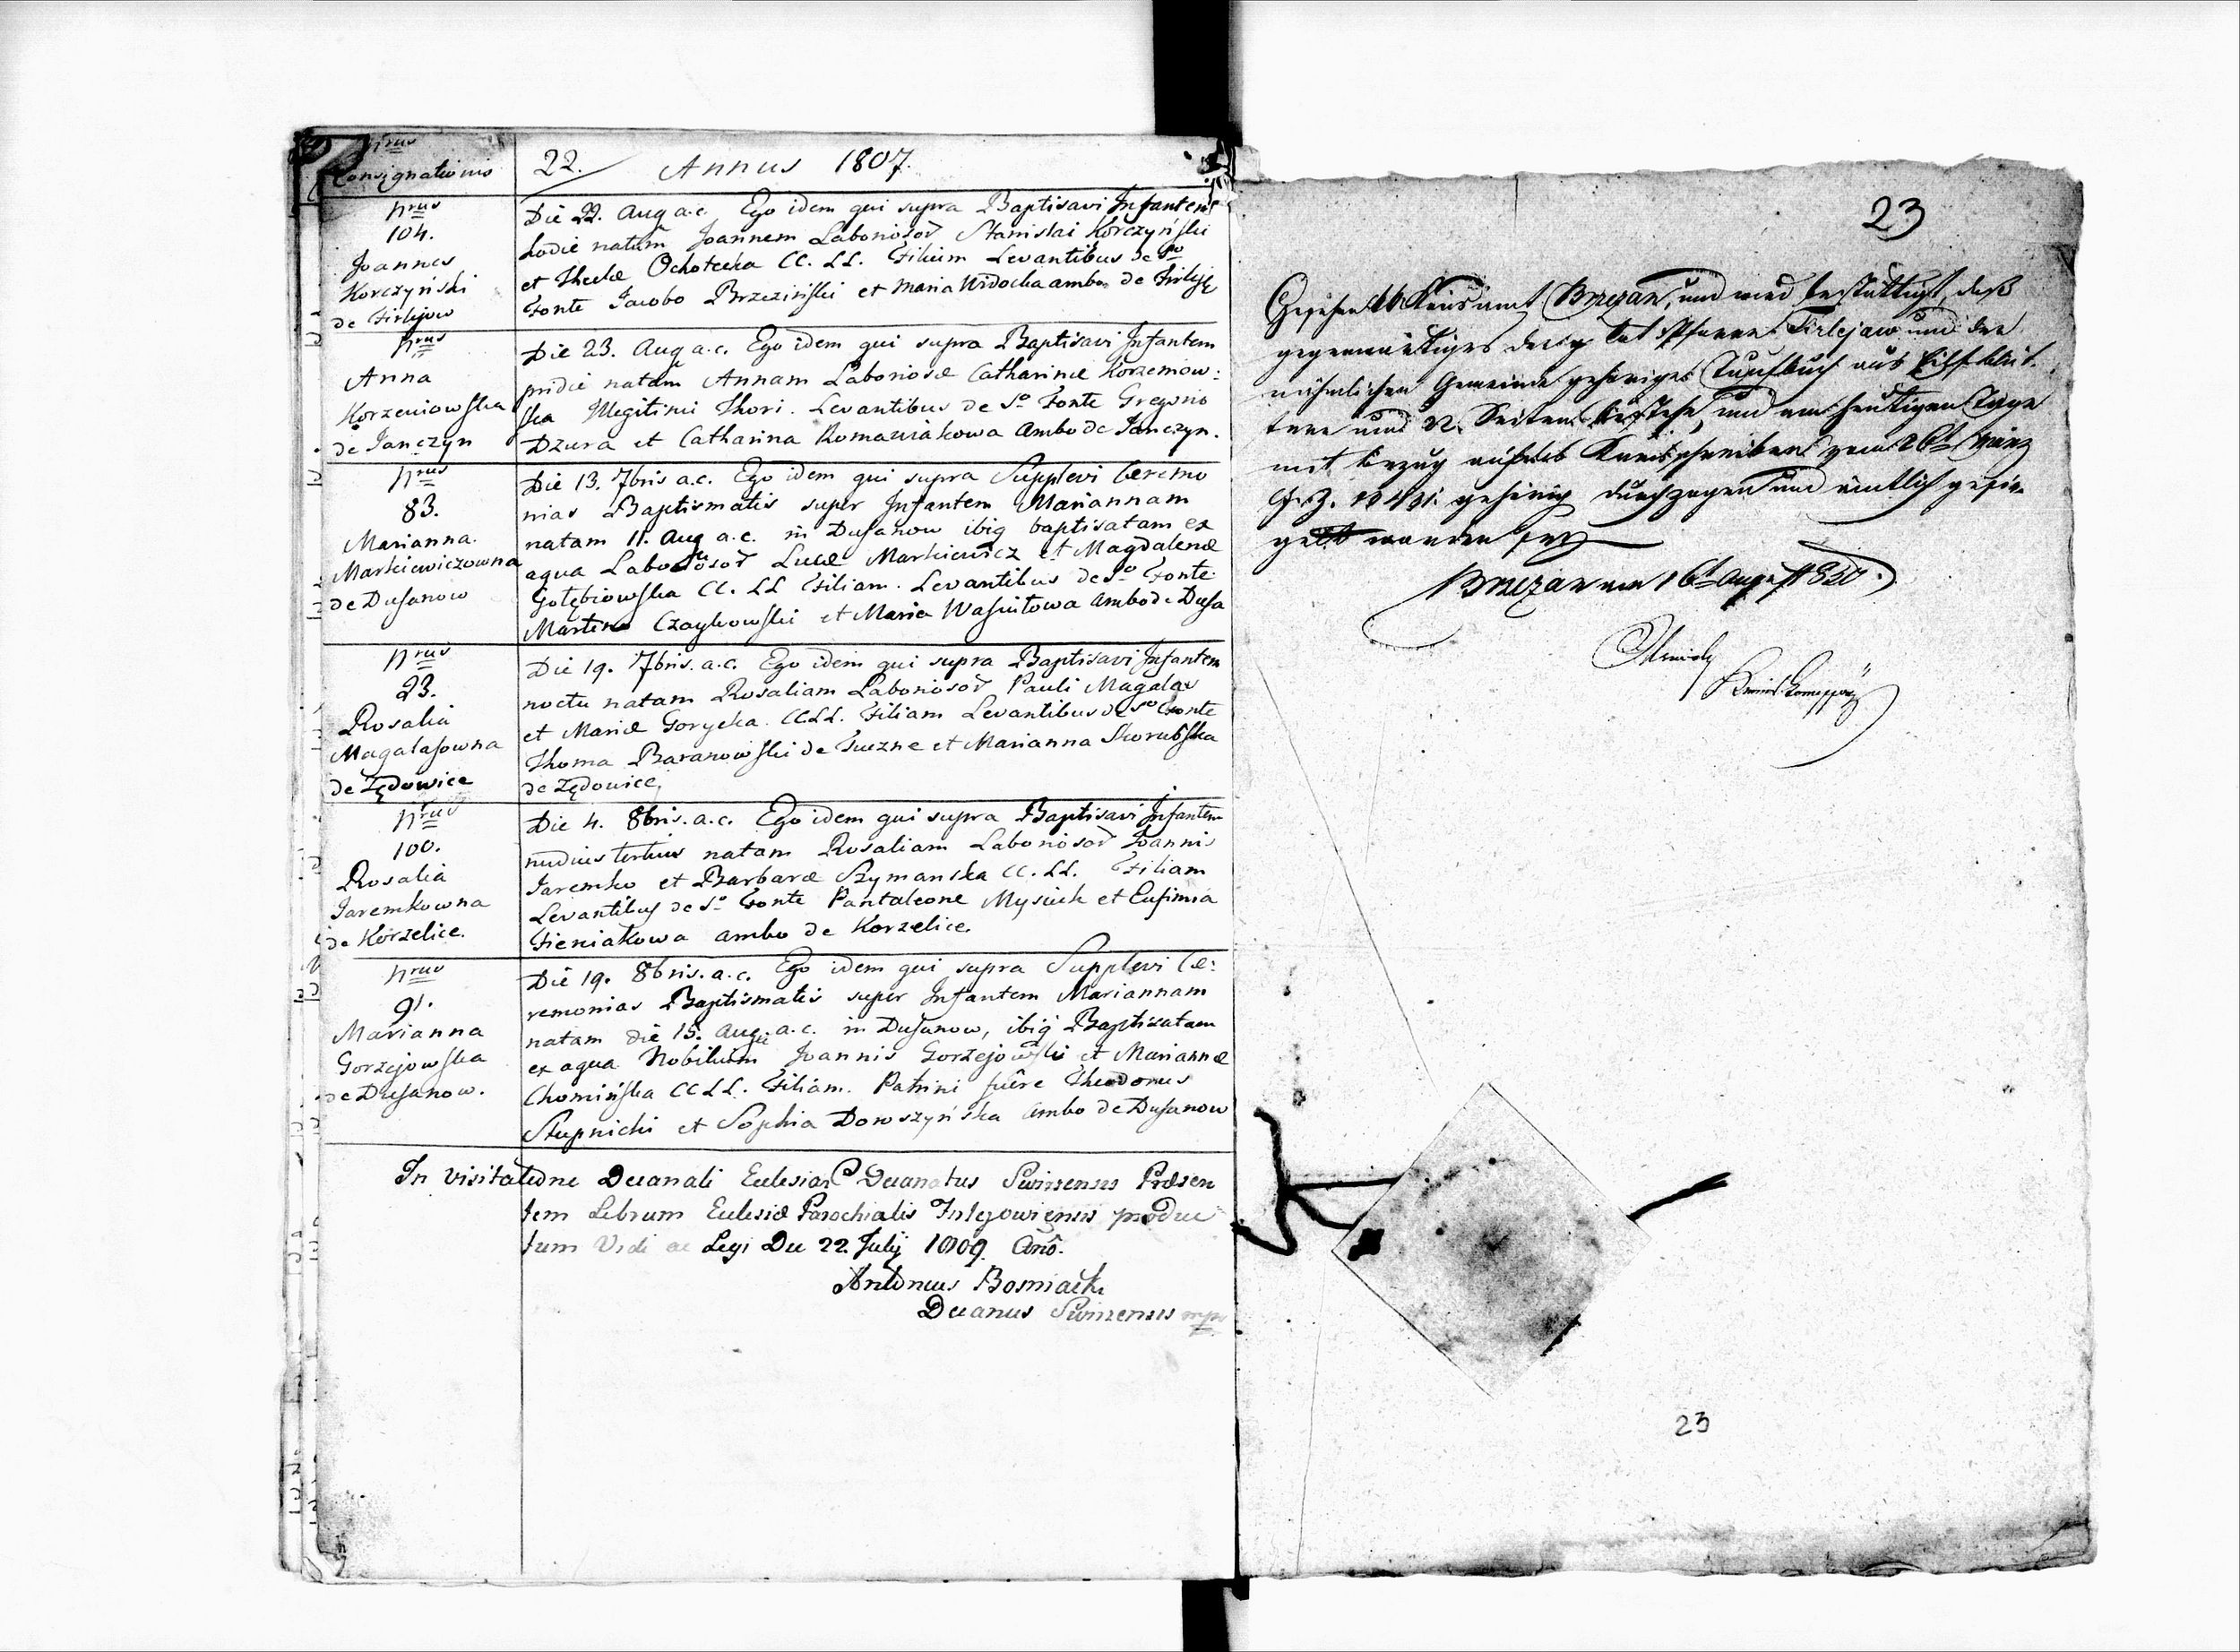 Nrus
Consignationis
22. Annus 1807.
Nrus
104.
Joannes
Korczyński
de Firlejow
Die 22. Aug a.c. Ego idem qui supra Baptisavi Infantem
hodie natum Joannem Laboriosor Stanislai Korczyński
et Theclæ Ochotecka CC. LL. Filium Levantibus de So
Fonte Jacobo Brzeziński et Maria Widocka ambo de Firleje
Nrus
Anna
Korzeniowska
de Janczyn
Die 23. Aug a.c. Ego idem qui supra Baptisavi Infantem
pridie natam Annam Laboriosæ Catharinæ Korzeniow:
ska Illegitimi Thori. Levantibus de So Fonte Gregorio
Dzura et Catharina Romaniakowa Ambo de Janczyn.
Nrus
83.
Marianna
Markiewiczowna
de Dusanow
Die 13. 7bris a.c. Ego idem qui supra Supplevi Ceremo
nias Baptismatis super Infantem Mariannam
natam 11. Aug a.c. in Dusanow ibiq baptisatam ex
aqua Laboriosor Lucæ Markiewicz et Magdalenæ
Gołębiowska CC. LL Filiam. Levantibus de So Fonte
Martino Czaykowski et Maria Wasiutowa Ambo de Dusa
Nrus
23.
Rosalia
Magalasowna
de Zędowice
Die 19. 7bris. a.c. Ego idem qui supra Baptisavi Infantem
noctu natam Rosaliam Laboriosor Pauli Magalas
et Mariæ Gorycka. CCLL. Filiam Levantibus de So Fonte
Thoma Baranowski de Tuczne et Marianna Skorubska
de Zędowice,
Nrus
100.
Rosalia
Jaremkowna
de Korzelice.
Die 4. 8bris. a.c. Ego idem qui supra Baptisavi Infantem
nudius tertius natam Rosaliam Laboriosor Joannis
Jaremko et Barbaræ Szymanska CC. LL. Filiam
Levantibus de So Fonte Pantaleone Mysiuk et Eufimia
Fieniakowa ambo de Korzelice.
Nrus
91.
Marianna
Gorzejowska
de Dusanow.
Die 19. 8bris. a.c. Ego idem qui supra Supplevi Cæ:
remonias Baptismatis super Infantem Mariannam
natam die 15. Aug. a.c. in Dusanow, ibiq Baptisatam
ex aqua Nobilium Joannis Gorzejowski et Mariannæ
Chomińska CCLL. Filiam. Patrini fuêre Theodorus
Stupnicki et Sophia Dowszyńska Ambo de Dusanow
In visitatione Decanali Eclesiar Decanatus Swirzensis Præsen
tem Librum Eclesiæ Parochialis Firlejowiensis produc
tum Vidi ac Legi Die 22. July 1809. Anô.
Antonius Bosniacki
Decanus Swirzensis mp
23
Gesehen kk Kreisamt Brzezan, und wird bestättigt, daß
gegenwärtiges der lat Pfarre Firlejow und der
nähmlichen Gemeinde gehöriges Taufbuch aus Eilf Blät-
tern und 22 Seiten bestehe, und am heutigen Tage
mit Bezug auf das Kreisschreiben vom 26t März
gehörig durchzogen und ämtlich gesie-
gelt worden sey
Brzezan am 16t August 1830.
Kreis-Kommissär
23